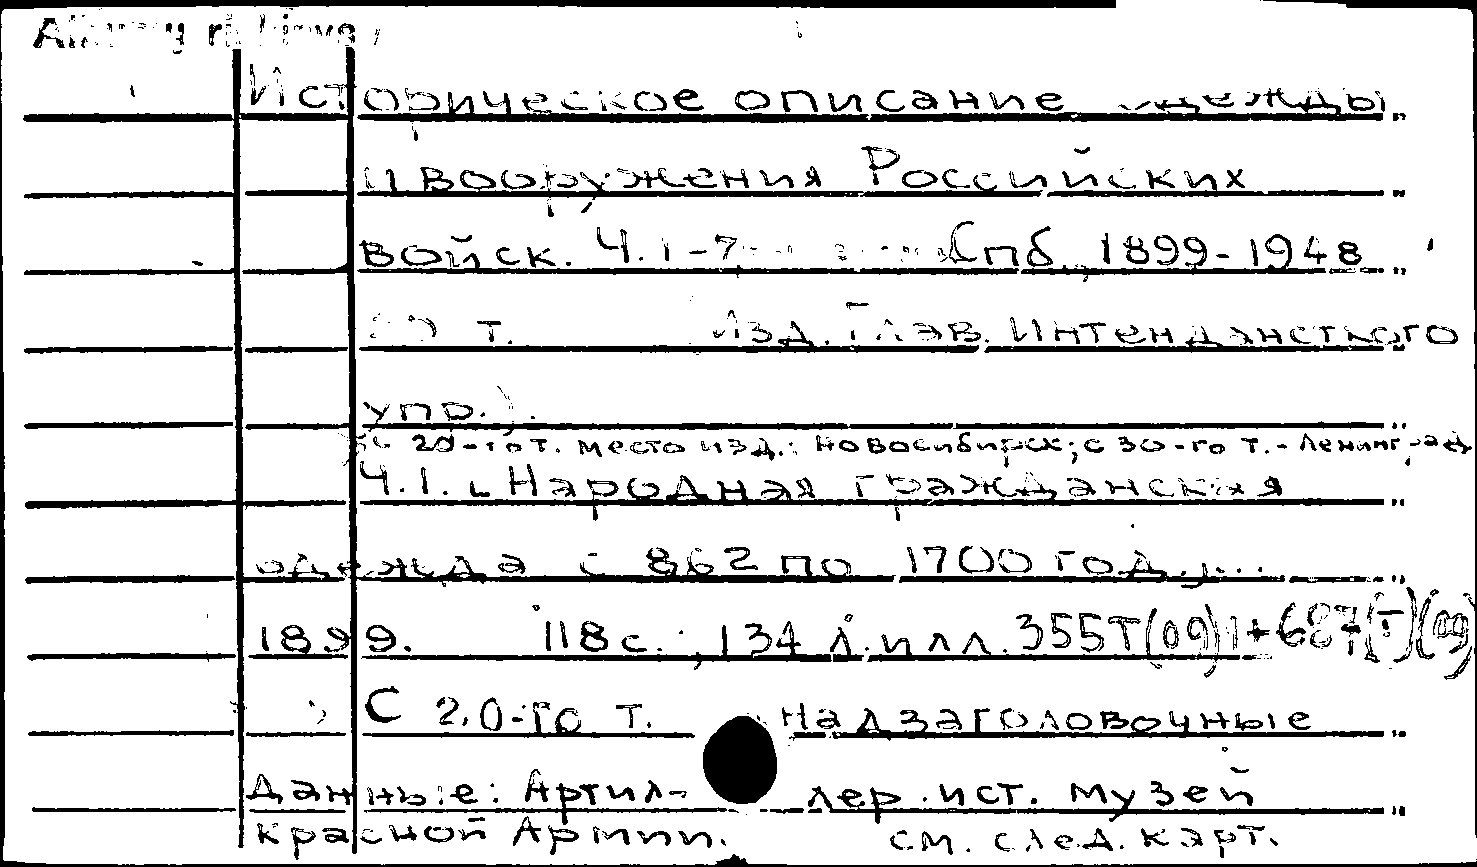 Историческое описание одежды
и вооружения Российских
войск. Ч.1-7 Спб, 1899-1948
т. Изд. Глав. Интендансткого
упр.).
20-го т. место изд.: Новосибирск; с 30-го т. - Ленинград
Ч.1. Народная гражданская
одежда с 862 по 1700 год.,...
1899. 118 с.; 134 л. илл. 355Т(09)1+687(Т)(09)
С 20-го т. надзаголовочные
данные: Артил- лер. ист. музей
красной Армии. см. след. карт.